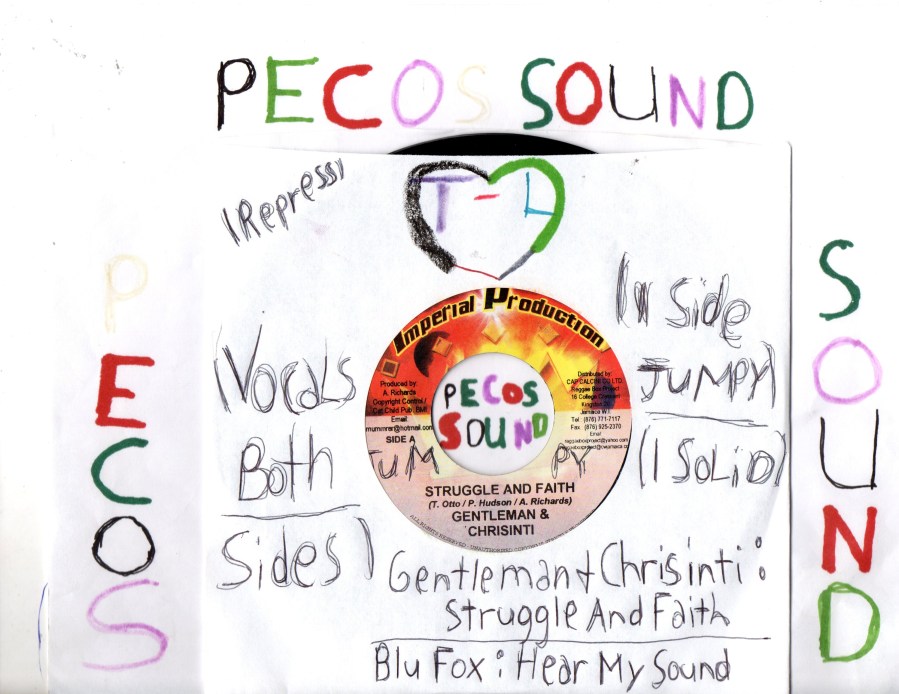 PECOS SOUND
(Repress)
T-A
PECOS
SOUND
(Vocals
Both
Sides)
(Riddim
Side
JUMPY)
(1 SOLID)
Imperial Production
Produced by:
A. Richards
Copyright Control /
Cat Child Pub. BMI
Email:
mummrar@hotmail.com
SIDE A
Distributed by:
CAP CALCINI CO LTD.
Reggae Box Project
16 College Crescent
Kingston
Jamaica W.I.
Tel : (876) 771-7117
Fax : (876) 925-2370
Email
PECOS
SOUND
JUM PY
STRUGGLE AND FAITH
(T. Otto / P. Hudson / A. Richards)
GENTLEMAN &
CHRISINTI
Gentleman + Chrisinti :
Struggle And Faith
Blu Fox : Hear My Sound